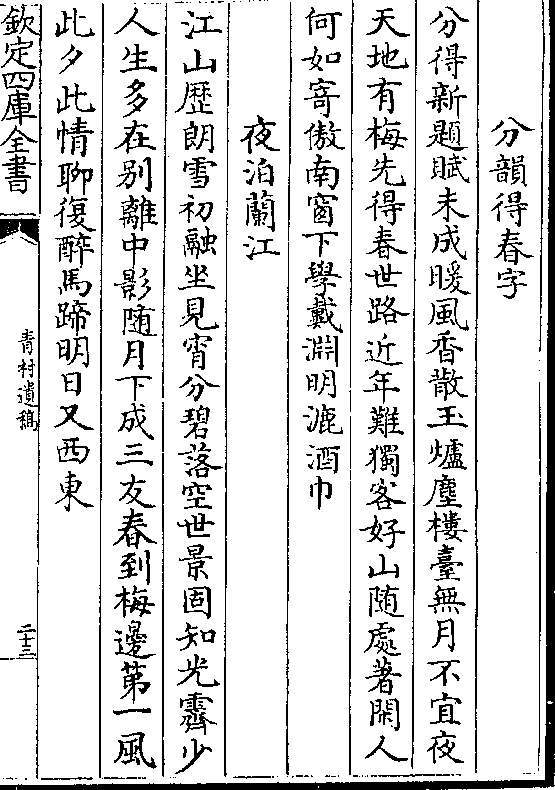 分韻得春字
分得新題賦未成暖風香散玉爐塵樓臺無月不宜夜
天地有梅先得春世路近年難獨客好山随處著閑人
何如寄傲南窗下學戴淵明漉酒巾
夜泊蘭江
江山歷朗雪初融坐見宵分碧落空世景固知光霽少
人生多在别離中影随月下成三友春到梅邊第一風
此夕此情聊復醉馬蹄明日又西東
欽定四庫全書
青村遺稿
二十三